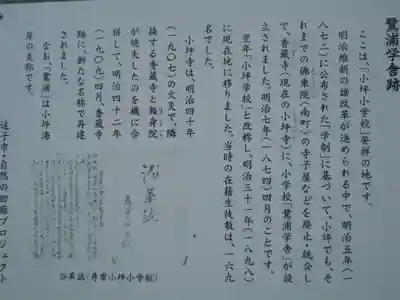 鷺浦学舎跡
ここは、「小坪小学校」発祥の地です。
明治維新の諸改革が進められる中で、明治五年(一
八七二)に公布された「学制」に基づいて、小坪でも、そ
れまでの佛乗院(南町)の寺子屋などを廃止・統合し
て、香蔵寺(現在の小坪寺)に、小学校「鷺浦学舎」が設
立されました。明治七年(一八七四)四月のことです。
翌年「小坪学校」と改称し、明治三十一年(一八九八)
に現在地に移りました。当時の在籍生徒数は、一六九
名でした。
小坪寺は、明治四十年
(一九〇七)の火災で、隣
接する香蔵寺と報身院
が焼失したのを機に合
併して、明治四十二年
(一九〇九)四月、香蔵寺
跡に、新たな名称で再建
されました。
なお「鷺浦」は小坪海
岸の美称です。
沿革誌
沿革誌(尋常小坪小学校)
逗子市・自然の回廊プロジェクト